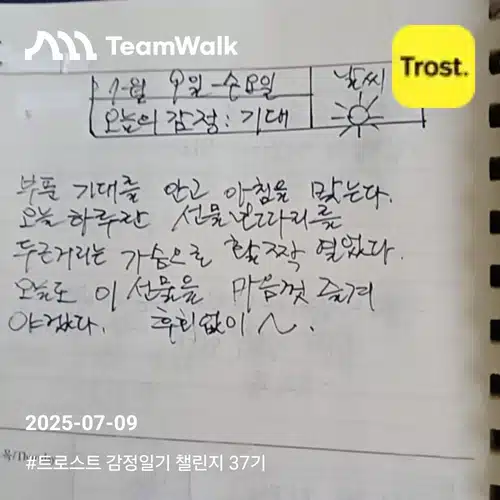 TeamWalk
Trost.
7월 9일 수요일
날씨
오늘의 감정 : 기대
부푼 기대를 안고 아침을 맞는다.
오늘 하루란 선물보따리를
두근거리는 가슴으로 활짝 열었다.
오늘도 이 선물을 마음껏 즐겨
야겠다. 후회없이 ~.
2025-07-09
#트로스트 감정일기 챌린지 37기